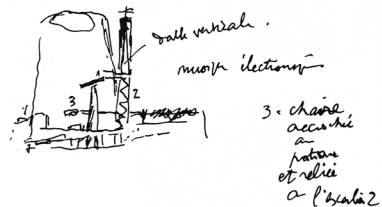 dalle verticale.
musique électronique
2
3
3 = chaire
accrochée
au
portique
et reliée
à l'escalier 2